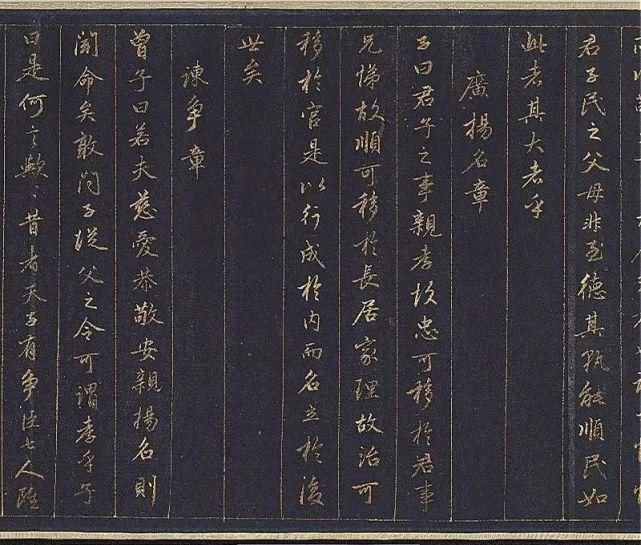 君子民之父母非至德其孰能順民如
此者其大者乎
廣揚名章
子曰君子之事親孝故忠可移於君事
兄悌故順可移於長居家理故治可
移於官是以行成於内而名立於後
世矣
諫争章
曾子曰若夫慈愛恭敬安親揚名則
聞命矣敢問子從父之令可謂孝乎子
曰是何言歟〻昔者天子有争臣七人雖